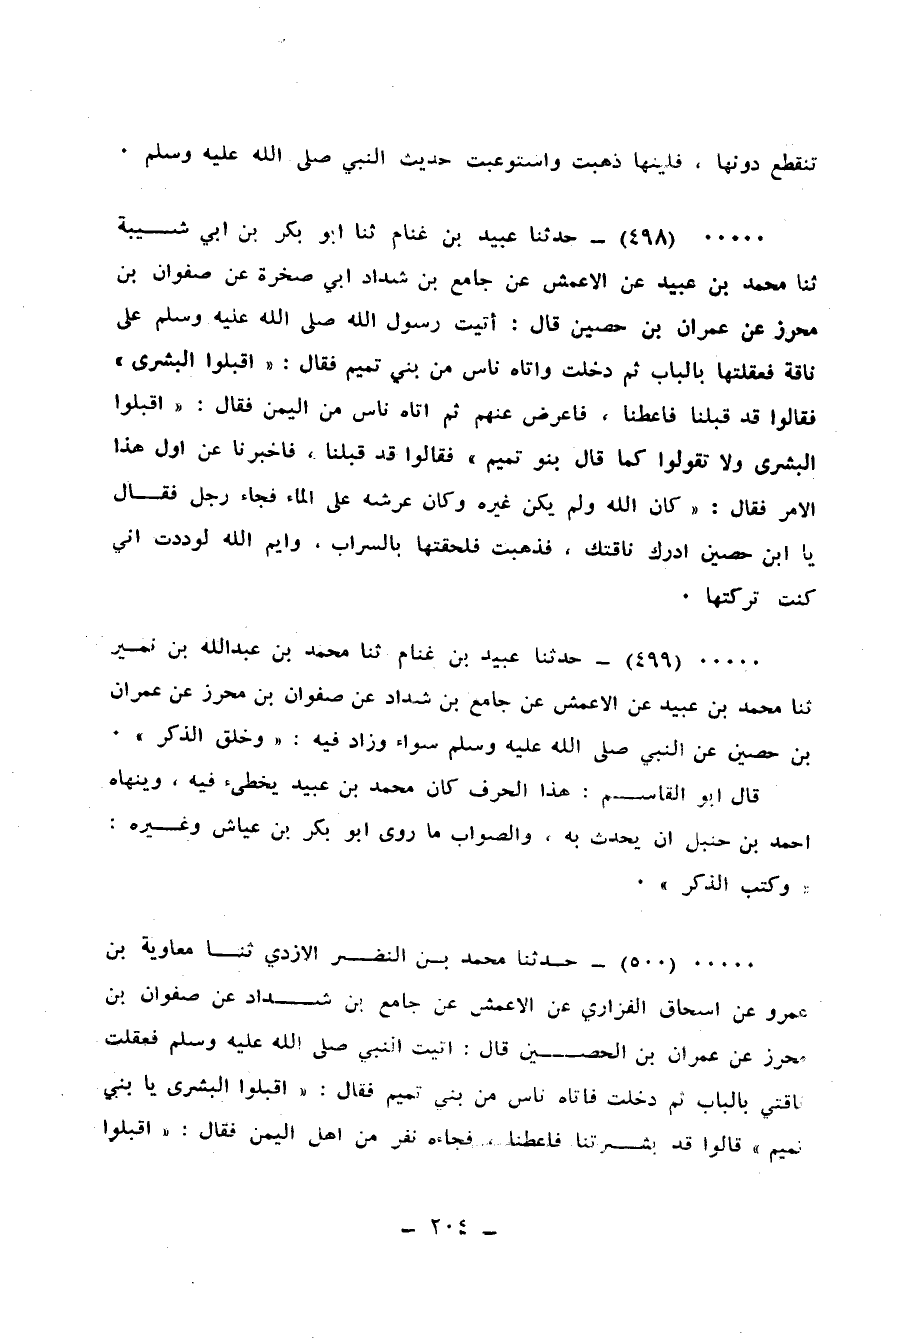 تنقطع دونها ، فليتها ذهبت واستوعبت حديث النبي صلى الله عليه وسلم ٠
٠٠٠٠٠ (٤٩٨) ـ حدثنا عبيد بن غنام ثنا ابو بكر بن ابي شـــيبة
ثنا محمد بن عبيد عن الاعمش عن جامع بن شداد ابي صخرة عن صفوان بن
محرز عن عمران بن حصين قال : أتيت رسول الله صلى الله عليه وسلم على
ناقة فعقلتها بالباب ثم دخلت واتاه ناس من بني تميم فقال : « اقبلوا البشرى »
فقالوا قد قبلنا فاعطنا ، فاعرض عنهم ثم اتاه ناس من اليمن فقال : « اقبلوا
البشرى ولا تقولوا كما قال بنو تميم » فقالوا قد قبلنا ، فاخبرنا عن اول هذا
الامر فقال : « كان الله ولم يكن غيره وكان عرشه على الماء فجاء رجل فقـــال
يا ابن حصين ادرك ناقتك ، فذهبت فلحقتها بالسراب ، وايم الله لوددت اني
كنت تركتها ٠
٠٠٠٠٠ (٤٩٩) ـ حدثنا عبيد بن غنام ثنا محمد بن عبدالله بن نمـــير
ثنا محمد بن عبيد عن الاعمش عن جامع بن شداد عن صفوان بن محرز عن عمران
بن حصين عن النبي صلى الله عليه وسلم سواء وزاد فيه : « وخلق الذكر » ٠
قال ابو القاســـم : هذا الحرف كان محمد بن عبيد يخطىء فيه ، وينهاه
احمد بن حنبل ان يحدث به ، والصواب ما روى ابو بكر بن عياش وغـــيره :
« وكتب الذكر » ٠
٠٠٠٠٠ (٥٠٠) ـ حـــدثنا محمد بـــن النضـــر الازدي ثنـــا معاوية بن
عمرو عن اسحاق الفزاري عن الاعمش عن جامع بن شـــداد عن صفوان بن
محرز عن عمران بن الحصـــين قال : اتيت النبي صلى الله عليه وسلم فعقلت
ناقتي بالباب ثم دخلت فاتاه ناس من بني تميم فقال : « اقبلوا البشرى يا بني
تميم » قالوا قد بشـــرتنا فاعطنا ، فجاءه نفر من اهل اليمن فقال : « اقبلوا
ـ ٢٠٤ ـ